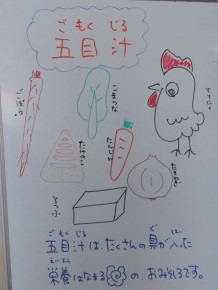 ごもく じる
五目汁
にわとり
こまつな
ごぼう
にんじん
たまねぎ
とうふ
ごもく じる ぐ はい
五目汁は、たくさんの具が入った
えいよう
栄養はなまるの、おみそしるです。